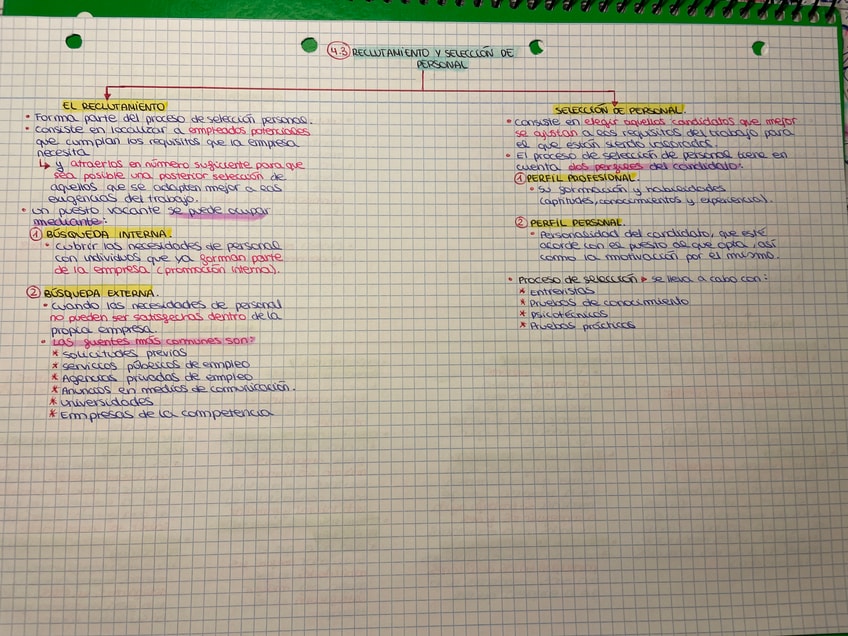 4.3 RECLUTAMIENTO Y SELECCIÓN DE
PERSONAL
EL RECLUTAMIENTO
• Forma parte del proceso de selección personal.
• Consiste en localizar a empleados potenciales
que cumplan los requisitos que la empresa
necesita
↳ y atraerlos en número suficiente para que
sea posible una posterior selección de
aquellos que se adapten mejor a las
exigencias del trabajo.
• Un puesto vacante se puede ocupar
mediante:
① BÚSQUEDA INTERNA.
• Cubrir las necesidades de personal
con individuos que ya forman parte
de la empresa (promoción interna).
② BÚSQUEDA EXTERNA.
• Cuando las necesidades de personal
no pueden ser satisfechas dentro de la
propia empresa.
• Las fuentes más comunes son:
* Solicitudes previas
* Servicios públicos de empleo
* Agencias privadas de empleo
* Anuncios en medios de comunicación.
* Universidades
* Empresas de la competencia
SELECCIÓN DE PERSONAL.
• Consiste en elegir aquellos candidatos que mejor
se ajustan a los requisitos del trabajo para
el que están siendo valorados.
• El proceso de selección de personal tiene en
cuenta dos perfiles del candidato:
① PERFIL PROFESIONAL.
• Su formación y habilidades
(aptitudes, conocimientos y experiencia).
② PERFIL PERSONAL.
• Personalidad del candidato, que esté
acorde con el puesto al que opta, así
como la motivación por el mismo.
• Proceso de selección ▸ se lleva a cabo con:
* Entrevistas
* Pruebas de conocimiento
* Psicotécnicos
* Pruebas prácticas